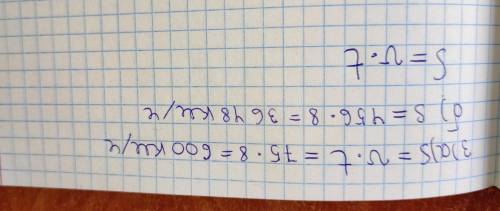 3)a)S = v · t = 75 · 8 = 600 км/ч
б) S = 456 · 8 = 3648 км/ч
S = v · t